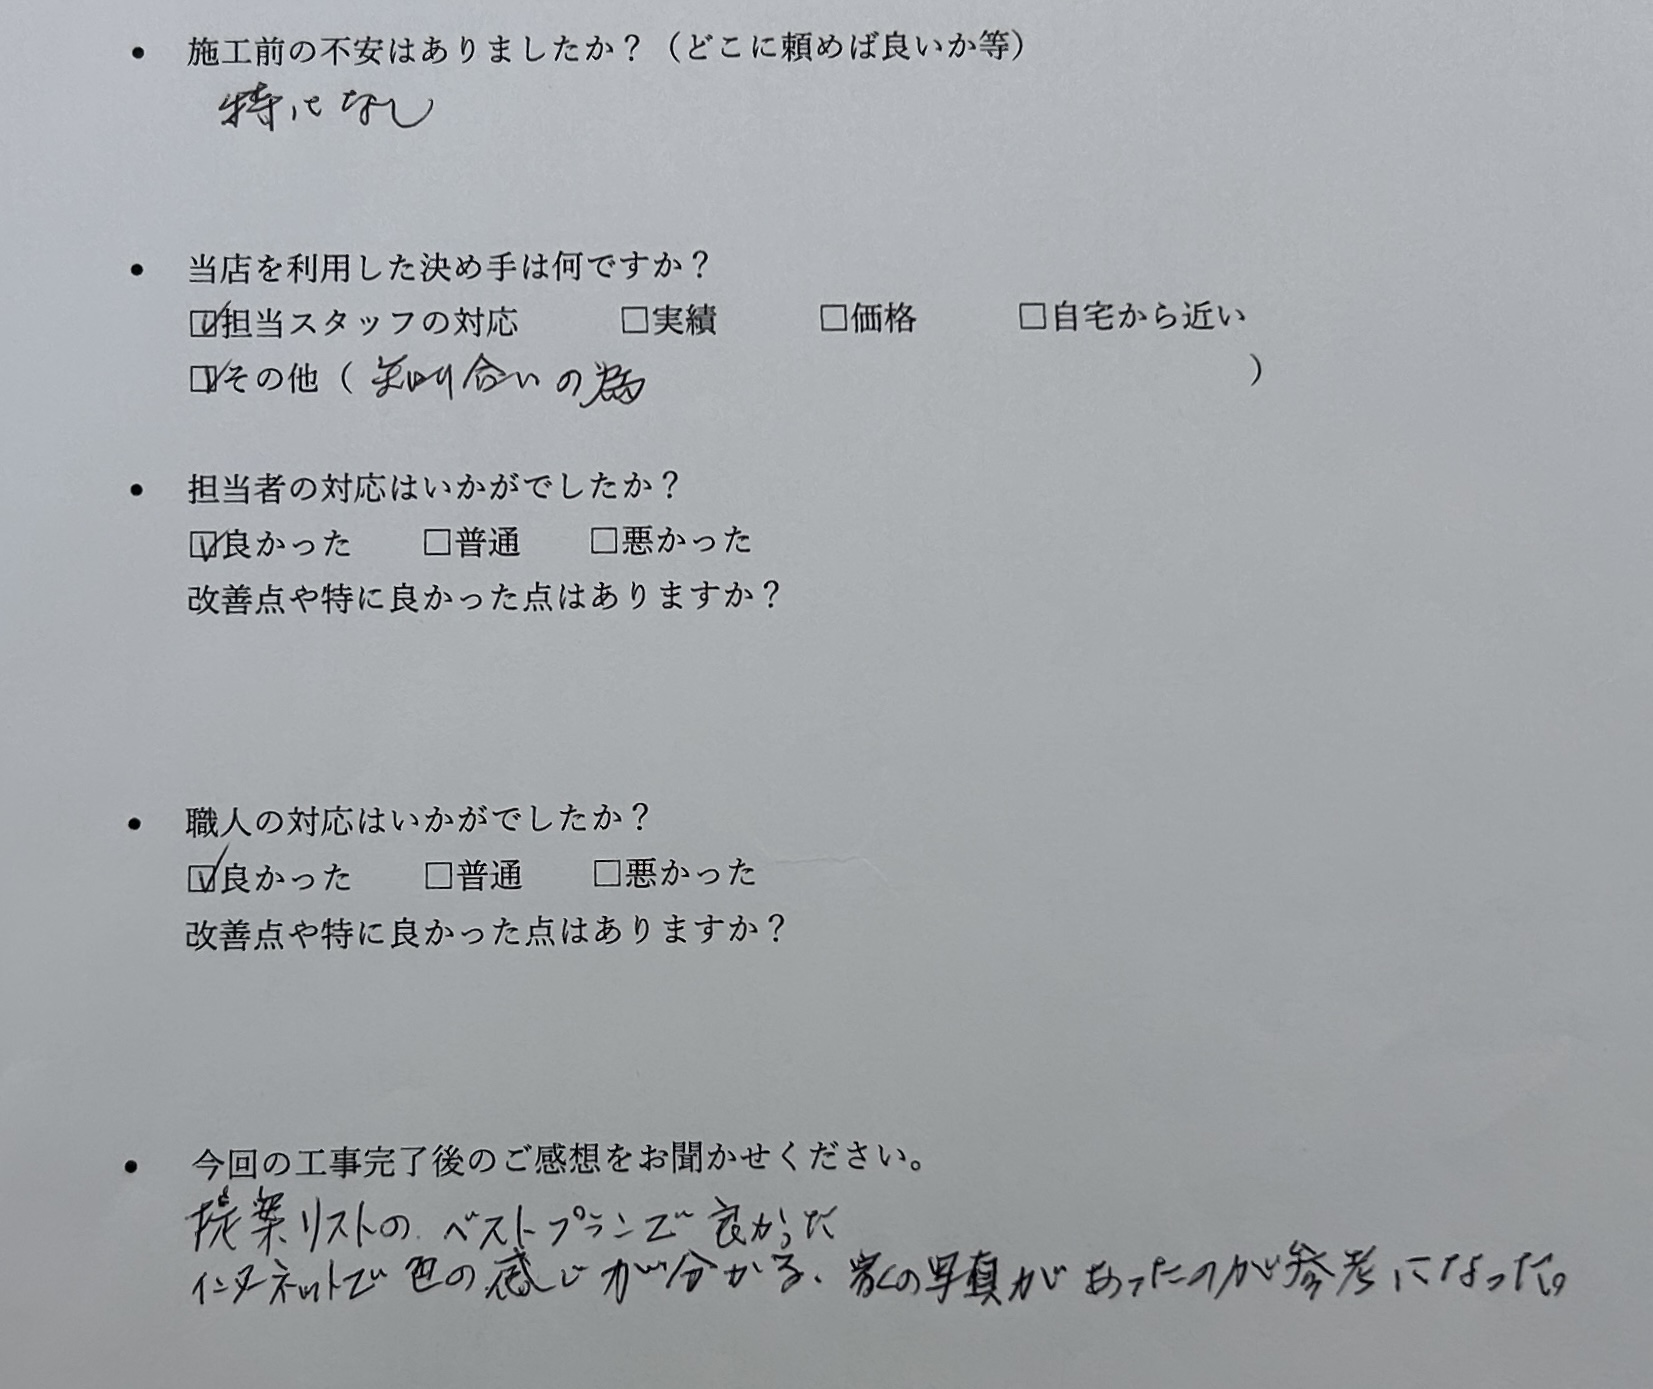 • 施工前の不安はありましたか？（どこに頼めば良いか等）
特になし
• 当店を利用した決め手は何ですか？
☑担当スタッフの対応 □実績 □価格 □自宅から近い
☑その他（ 知り合いの為 ）
• 担当者の対応はいかがでしたか？
☑良かった □普通 □悪かった
改善点や特に良かった点はありますか？
• 職人の対応はいかがでしたか？
☑良かった □普通 □悪かった
改善点や特に良かった点はありますか？
• 今回の工事完了後のご感想をお聞かせください。
提案リストの ベストプランで良かった
インターネットで色の感じが分かる、家の写真があったのが参考になった。